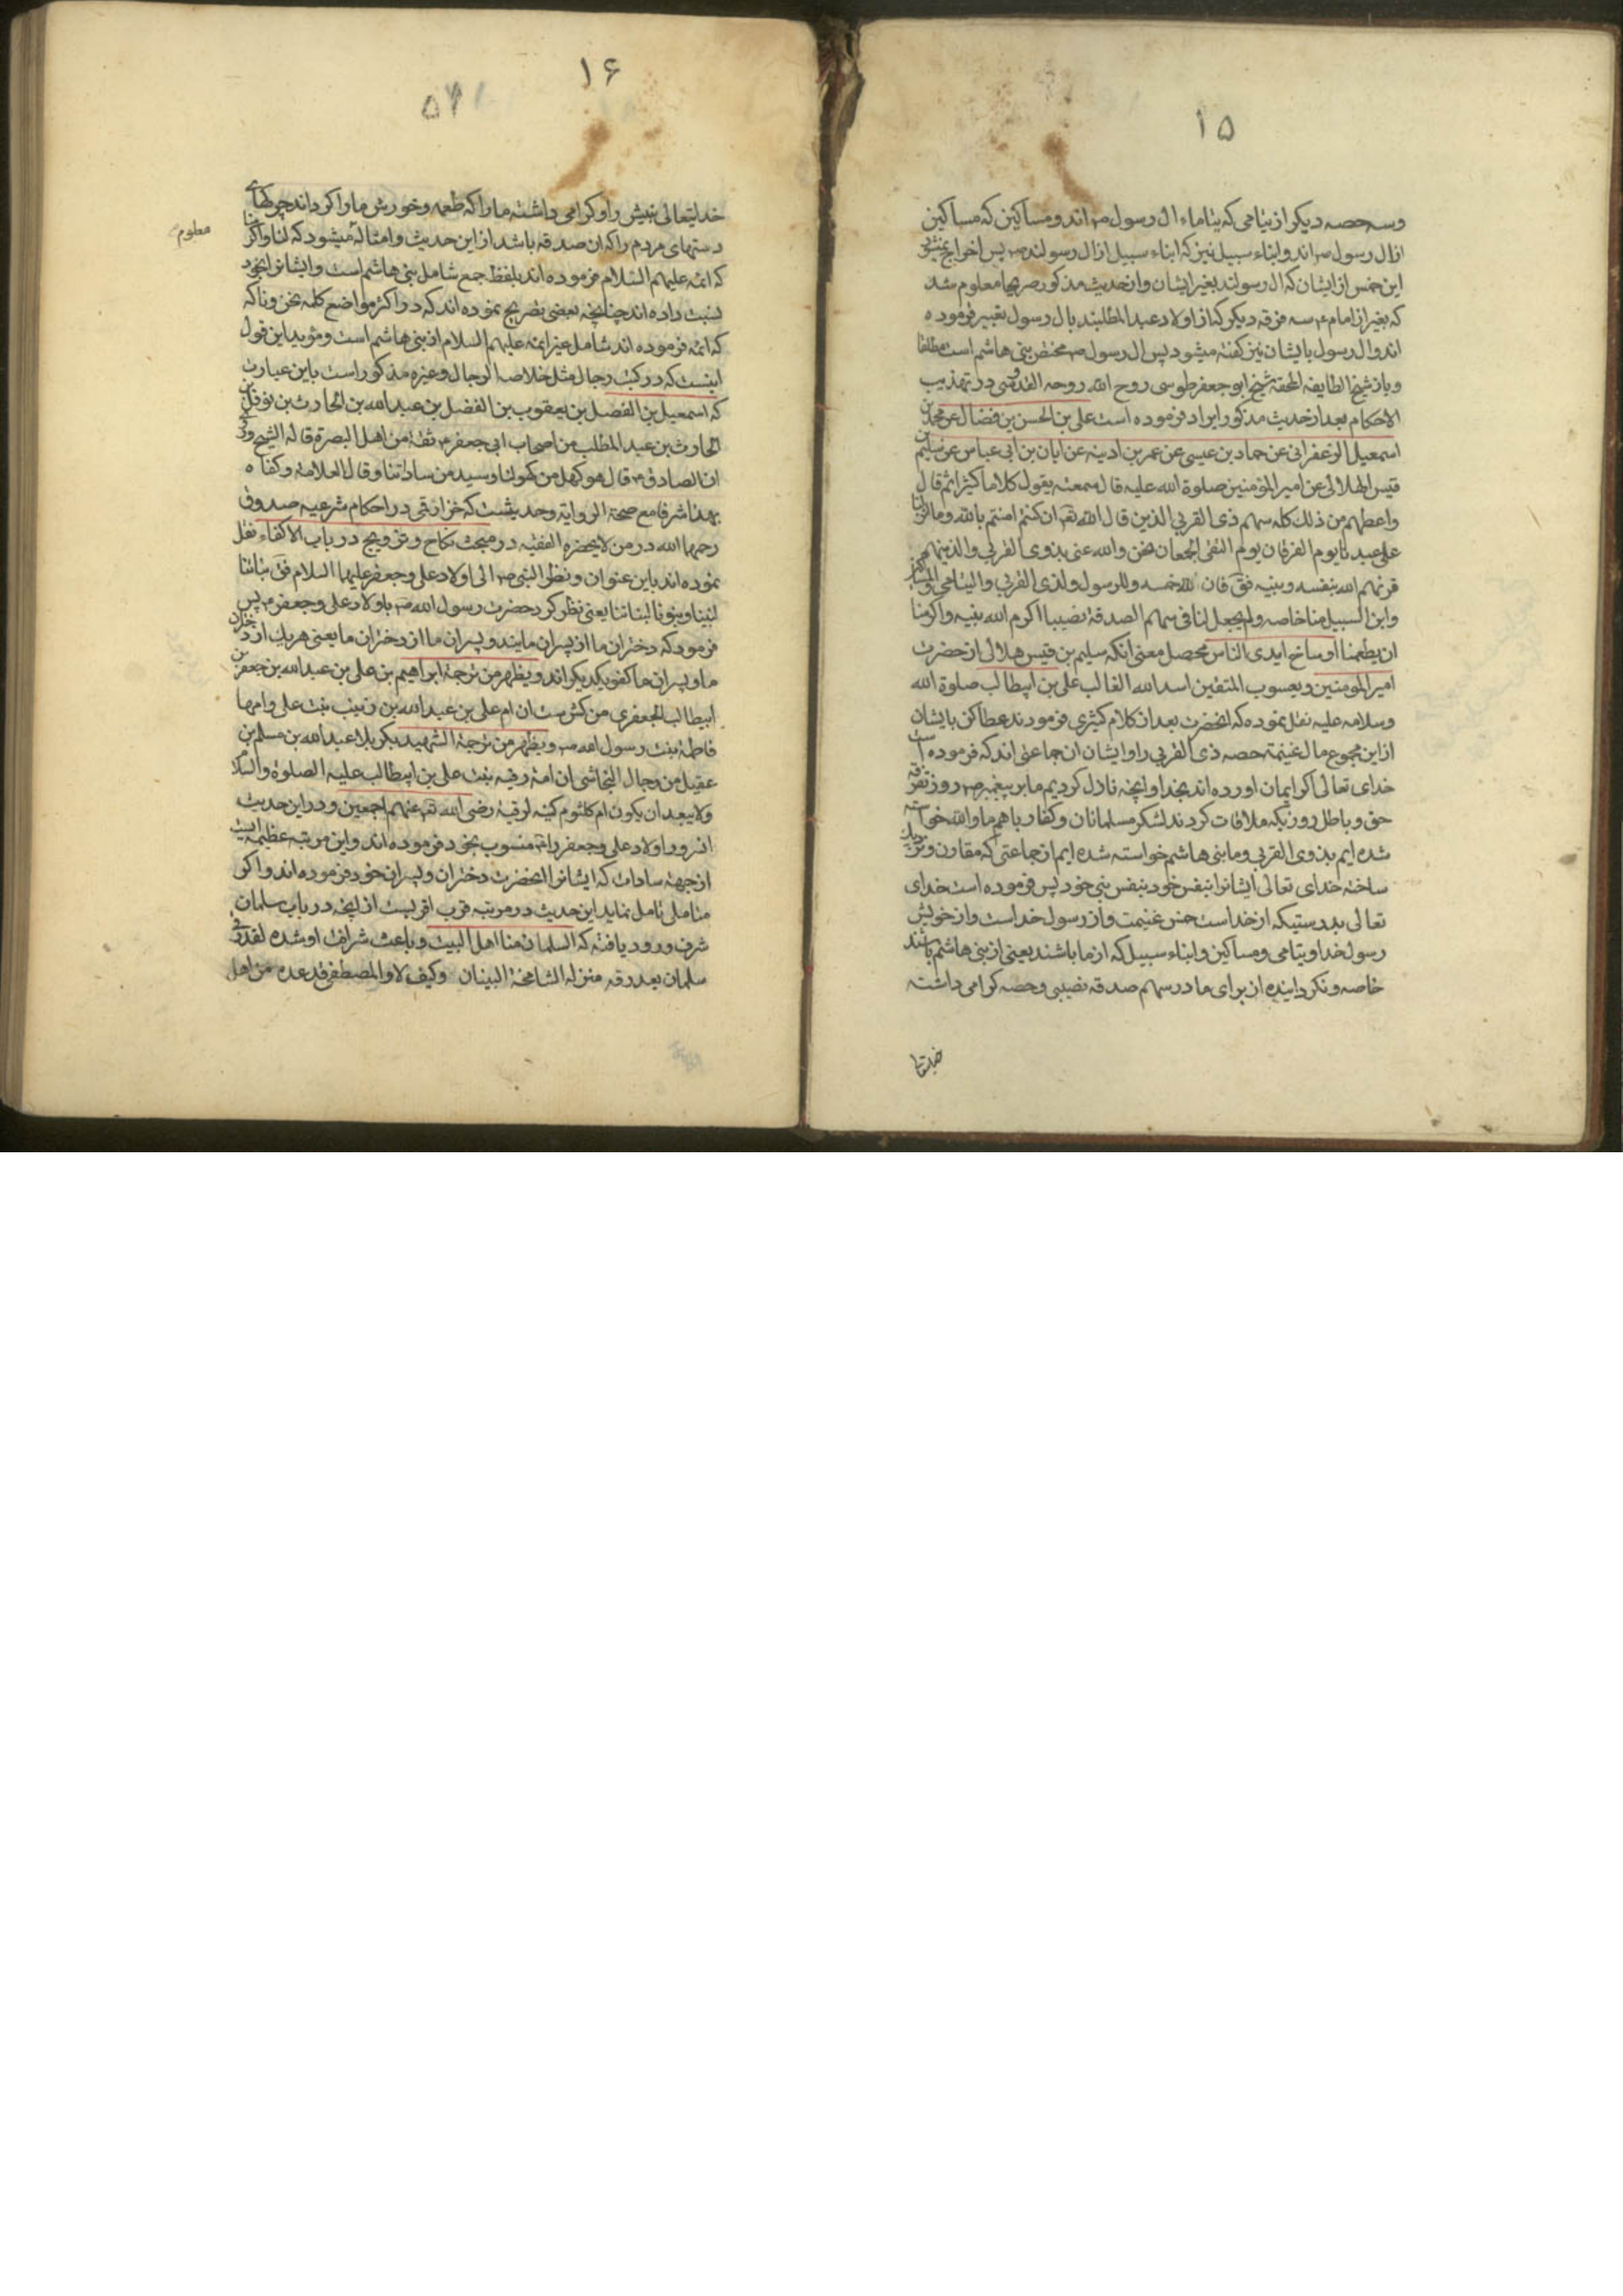 ۱۵
وسه حصه دیکر از یتامی که یتاماء ال رسول ص اند و مساکین که مساکین
از ال رسول ص اند و ابناء سبیل نیز که ابناء سبیل از ال رسولند ص پس اخراج نمیشود
این خمس از ایشان که ال رسولند بغیر ایشان و از حدیث مذکور صریحا معلوم شد
که بغیر از امام ع سه فرقه دیکر که از اولاد عبد المطلبند بال رسول تعبیر فرموده
اند و ال رسول بایشان نیز کفته میشود پس ال رسول ص مختص بنی هاشم است مطلقا
و باز شیخ الطایفه المحقه شیخ ابو جعفر طوسی روح الله روحه القدوسی در تهذیب
الاحکام بعد از حدیث مذکور ایراد فرموده است علی بن الحسن بن فضال عن محمد بن
اسمعیل الزعفرانی عن حماد بن عیسی عن عمر بن اذینه عن ابان بن ابی عیاش عن سلیم بن
قیس الهلالی عن امیر المؤمنین صلوة الله علیه قال سمعته یقول کلاما کثیرا ثم قال
واعطهم من ذلک کله سهم ذی القربی الذین قال الله تعـ ان کنتم امنتم بالله وما انزلنا
علی عبدنا یوم الفرقان یوم التقی الجمعان نحن والله عنی بذوی القربی والذین هم
قرنهم الله بنفسه وبنبیه فق فان لله خمسه وللرسول ولذی القربی والیتامی والمساکین
وابن السبیل منا خاصه ولم یجعل لنا فی سهم الصدقة نصیبا اکرم الله نبیه واکرمنا
ان یطعمنا اوساخ ایدی الناس محصل معنی انکه سلیم بن قیس هلالی از حضرت
امیر المؤمنین و یعسوب المتقین اسد الله الغالب علی بن ابیطالب صلوة الله
وسلامه علیه نقل نموده که انحضرت بعد از کلام کثیری فرمودند عطا کن بایشان
از این مجموع مال غنیمة حصه ذی القربی را و ایشان ان جماعتی اند که فرموده است
خدای تعالی اکر ایمان اورده اند بخدا و انچه نازل کردیم ما بر پیغمبر ص روز تفرقه
حق و باطل روزیکه ملاقات کردند لشکر مسلمانان و کفار باهم ما والله خواسته
شده ایم بذوی القربی و ما بنی هاشم خواسته شده ایم از جماعتی که مقارن و نزدیک
ساخته خدای تعالی ایشانرا بنفس خود بنفس نبی خود پس فرموده است خدای
تعالی بدرستیکه از خداست خمس غنیمت و از رسول خداست و از خویش
رسول خدا و یتامی و مساکین و ابناء سبیل که از ما باشند یعنی از بنی هاشم باشند
خاصه و نکردانیده از برای ما در سهم صدقه نصیبی و حصه کرامی داشته
خدایتعا
۱۶
خدایتعالی نبیش را و کرامی داشته ما را که طعمه و خورش ما را کرداند چرکهای
دستهای مردم را که ان صدقه باشد از این حدیث و امثاله میشود که لنا و اکرمنا
معلوم
که ائمه علیهم السلام فرموده اند بلفظ جمع شامل بنی هاشم است و ایشانرا بخود
نسبت داده اند چنانچه بعضی تصریح نموده اند که در اکثر مواضع کلمه نحن و نا که
که ائمه فرموده اند شامل غیر ائمه علیهم السلام از بنی هاشم است و مؤید این قول
اینست که در کتب رجال مثل خلاصة الرجال و غیره مذکور است باین عبارت
که اسمعیل بن الفضل بن یعقوب بن الفضل بن عبد الله بن الحارث بن نوفل بن
الحارث بن عبد المطلب من اصحاب ابی جعفر ع ثقة من اهل البصرة قاله الشیخ وروی
ان الصادق ع قال هو کهل من کهولنا وسید من ساداتنا وقال العلامة وکفاه
بهذا شرفا مع صحة الروایة وحدیثست که خزاز قمی در احکام شرعیه صدوق
رحمهما الله در من لا یحضره الفقیه در مبحث نکاح و تزویج در باب الاکفاء نقل
نموده اند باین عنوان و نظر النبی ص الی اولاد علی وجعفر علیهما السلام فق بناتنا
لبنینا وبنونا لبناتنا یعنی نظر کرد حضرت رسول الله ص باولاد علی و جعفر ع پس
فرمود که دختران ما از پسران مایند و پسران ما از دختران ما یعنی هریک از دختران
ما و پسران ما کفو یکدیکراند و یظهر من ترجمة ابراهیم بن علی بن عبد الله بن جعفر بن
ابیطالب الجعفری من کش ست ان ام علی بن عبد الله بن زینب بنت علی وامها
فاطمة بنت رسول الله ص ویظهر من ترجمة الشهید بکربلا عبد الله بن مسلم بن
عقیل من رجال النجاشی ان امه رقیه بنت علی بن ابیطالب علیه الصلوة والسلام
ولا یبعد ان یکون ام کلثوم کنیه لرقیة رضی الله تعـ عنهم اجمعین و در این حدیث
انسرور اولاد علی و جعفر را منسوب بخود فرموده اند و این مرتبه عظیمه ایست
از جهة سادات که ایشانرا انحضرت دختران و پسران خود فرموده اند و اکر
متاملی تامل نماید این حدیث در مرتبه قرب اقربست از انچه در باب سلمان
شرف ورود یافته که السلمان منا اهل البیت و باعث شرافت او شده لقد رقی
سلمان بعد رقه منزله الشامخة البنیان وکیف لا والمصطفی قد عده من اهل